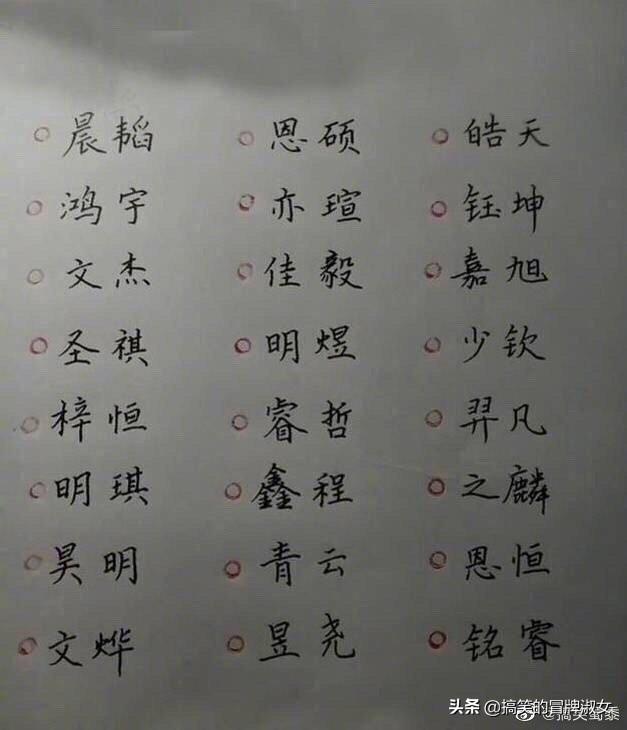 晨韬 恩硕 皓天
鸿宇 亦瑄 钰坤
文杰 佳毅 嘉旭
圣祺 明煜 少钦
梓恒 睿哲 羿凡
明琪 鑫程 之麟
昊明 青云 恩恒
文烨 昱尧 铭睿
头条 @搞笑的冒牌淑女
@搞笑蜀黍